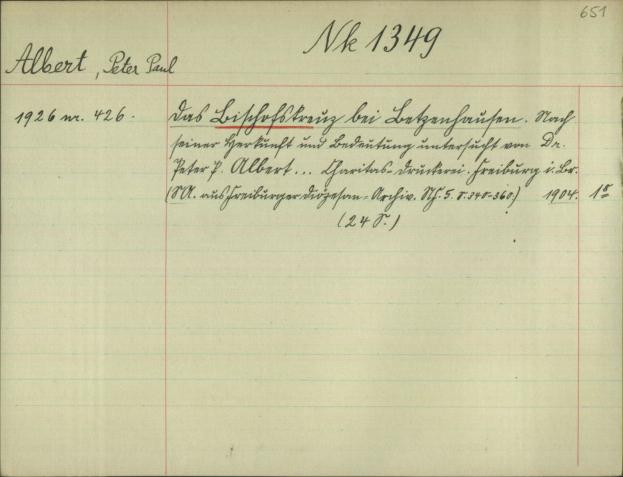 651
Nk 1349
Albert, Peter Paul
1926 nr. 426.
Das Bischofskreuz bei Betzenhausen. Nach
seiner Herkunft und Bedeutung untersucht von Dr.
Peter P. Albert... Charitas-Druckerei. Freiburg i. Br.
(S.A. aus Freiburger Diözesan-Archiv. NF. 5. S. 340-360.) 1904. 1 8
(24 S.)